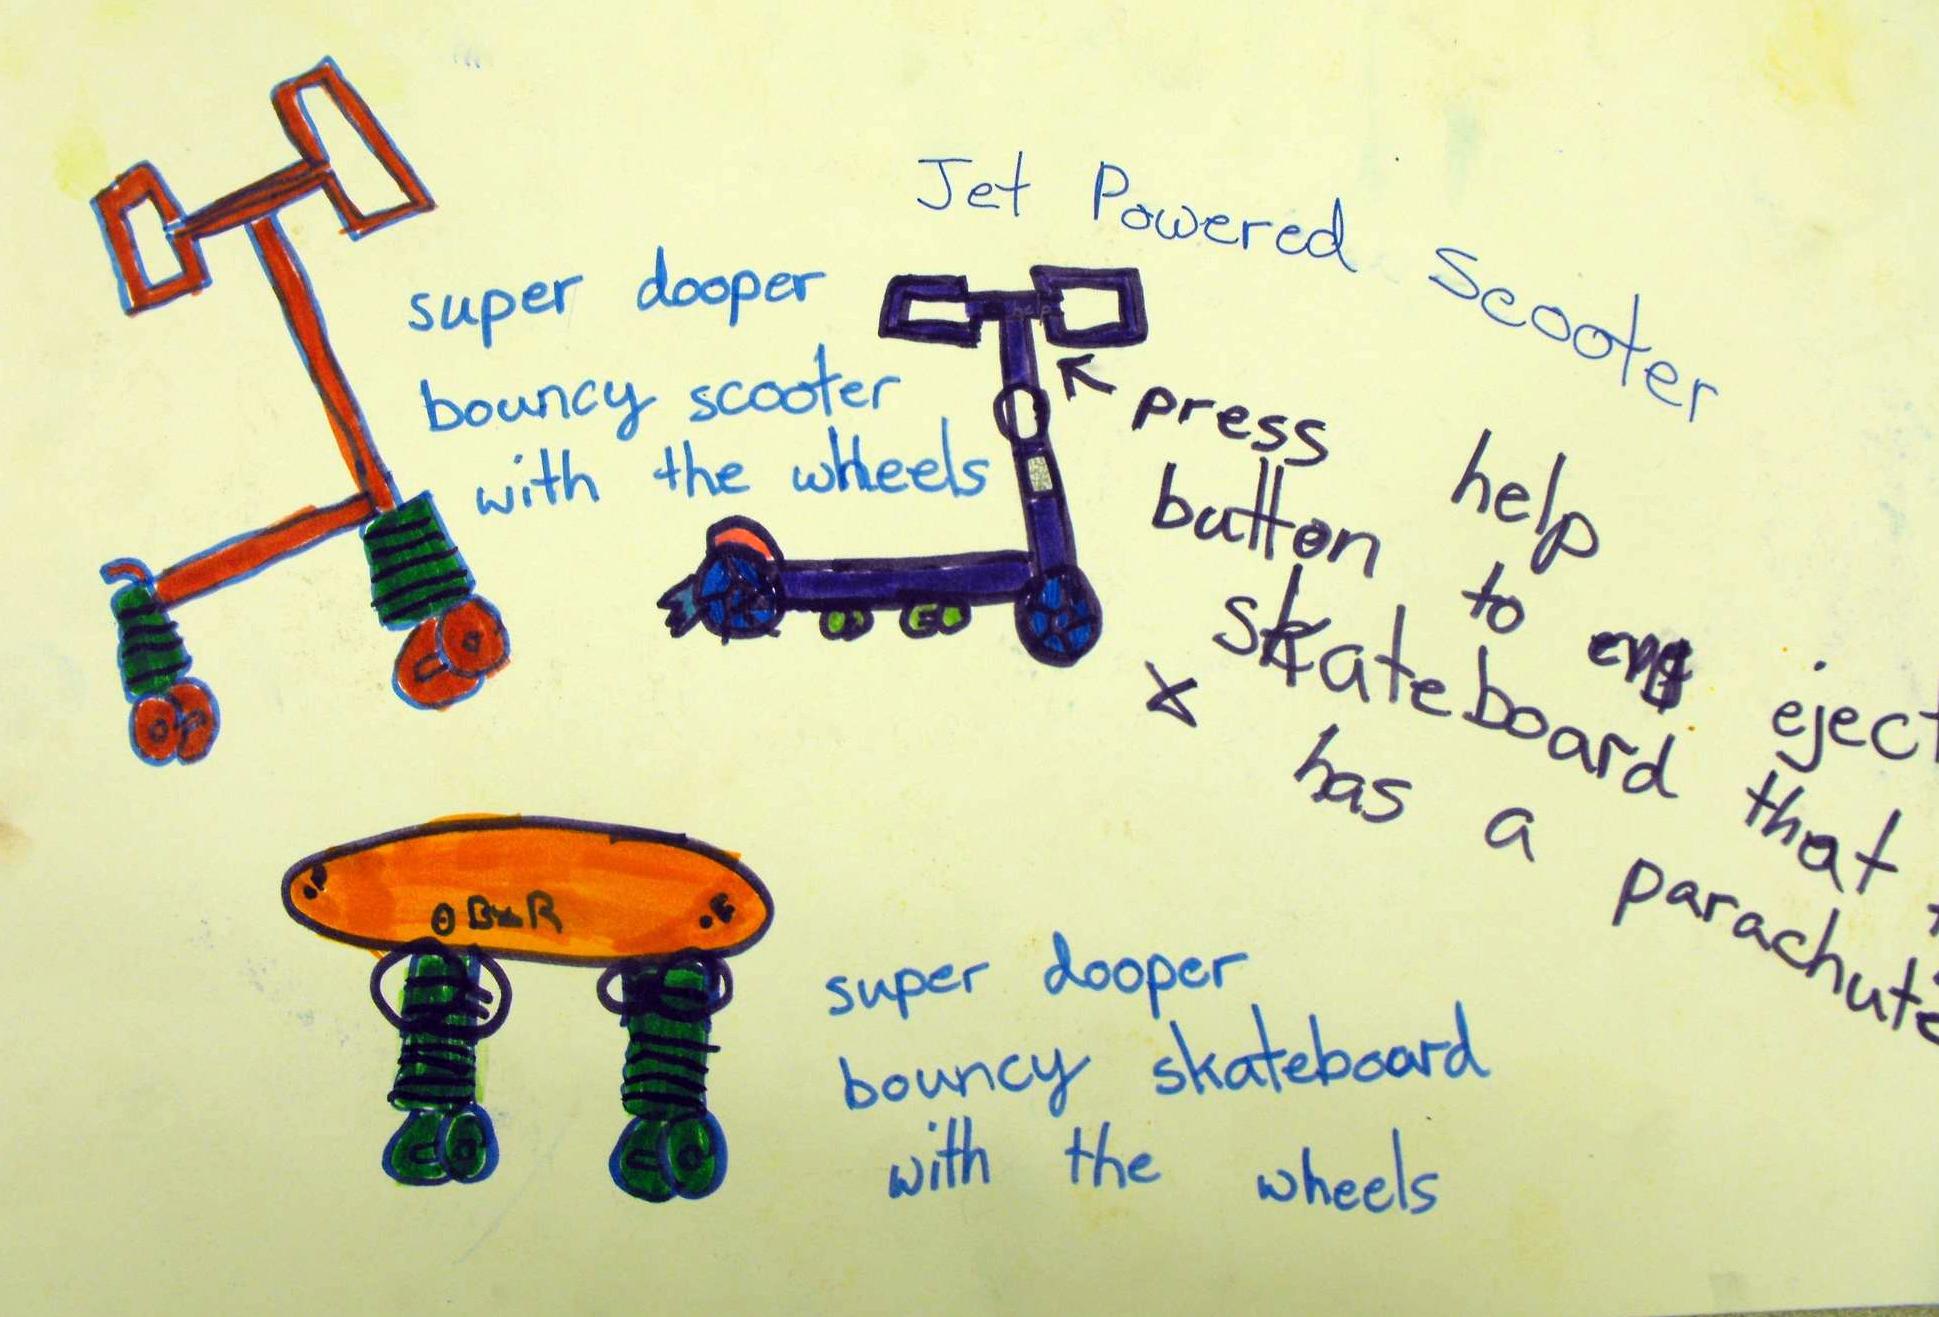 Jet Powered Scooter
super dooper
bouncy scooter
with the wheels
help
press help
button to eject
skateboard that
has a parachute
super dooper
bouncy skateboard
with the wheels